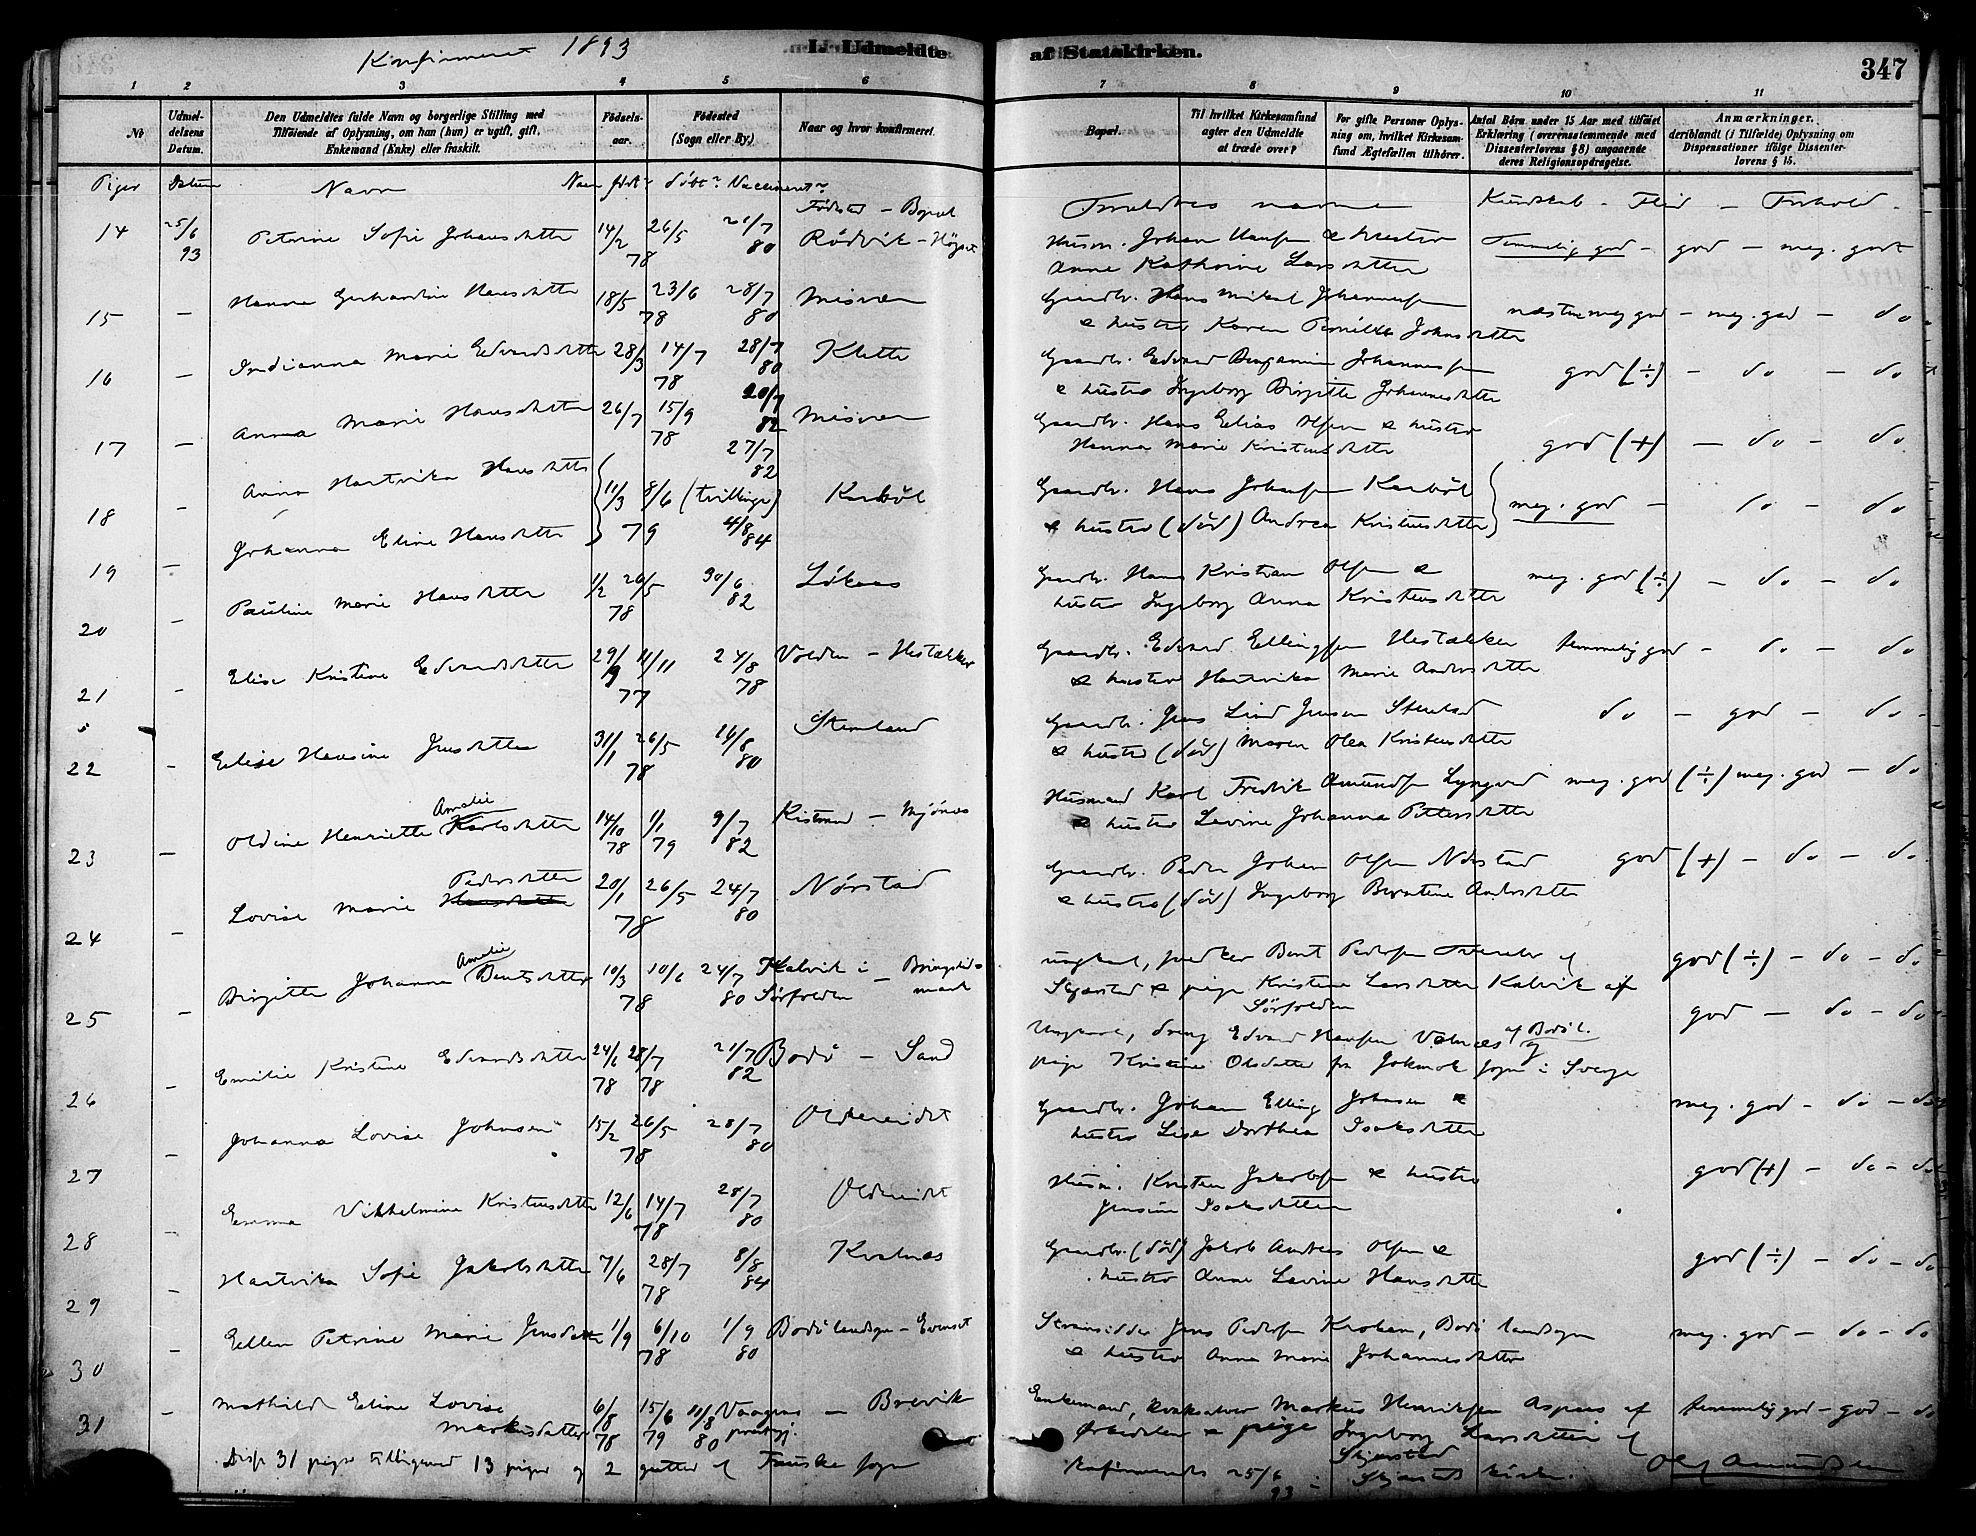 Konfirmeret 1893
L. Udmeldte af Statskirken.
347
1 2 3 4 5 6 7 8 9 10 11
No
Udmel-
delsens
Datum.
Den Udmeldtes fulde Navn og borgerlige Stilling med
Tilføiende af Oplysning, om han (hun) er ugift, gift,
Enkemand (Enke) eller fraskilt.
Fødsels-
aar.
Fødested
(Sogn eller By.)
Naar og hvor konfirmeret.
Bopæl.
Til hvilket Kirkesamfund
agter den Udmeldte
at træde over?
For gifte Personer Oplys-
ning om, hvilket Kirkesam-
fund Ægtefællen tilhører.
Antal Børn under 15 Aar med tilføiet
Erklæring (overensstemmende med
Dissenterlovens § 8) angaaende
deres Religionsopdragelse.
Anmærkninger.
deriblandt (i Tilfælde) Oplysning om
Dispensationer ifølge Dissenter-
lovens § 15.
Piger Datum Navn Naar født? døbt? Vaccineret?
Fødested - Bopæl
Forældres navne Kundskab - Flid - Forhold
14 25/6 93 Petrine Sofie Johansdatter 14/2 78 26/5 21/7 80 Rødvik - Høgset
Husm. Johan Hansen & hustru
Anne Kathrine Larsdatter
Temmelig god - god - meg. godt
15 - Hanna Gerhardine Hansdatter 18/5 23/6 78 28/7 80 Misvær
Gaardbr. Hans Mikal Johannesen
& hustru Karen Pernille Johnsdatter
næsten meg god - meg. god - do
16 - Indianna Marie Edvardsdatter 28/3 14/7 78 28/7 80 Klette
Gaardbr. Edvard Benjamin Johannesen
& hustru Ingeborg Birgitte Johannesdatter
god (÷) - do - do
17 - Anna Marie Hansdatter 26/7 15/9 78 20/7 82 Misvær
Gaardbr. Hans Elias Olsen & hustru
Hanna Marie Kristensdatter
god (+) - do - do
18 - Anna Hartvika Hansdatter 27/7 82
11/3 8/6 (tvillinger) 79 Karbøl
Johanna Eline Hansdatter 4/8 84
Gaardbr. Hans Johansen Karbøl
& hustru (død) Andrea Kristensdatter
meg. god - do - do
19 - Pauline Marie Hansdatter 1/2 26/5 78 30/6 82 Løkaas
Gaardbr. Hans Kristian Olsen &
hustru Ingeborg Anna Kristensdatter
meg. god (÷) - do - do
20 - Elise Kristine Edvardsdatter 29/9 11/11 77 24/8 78 Volden - Hestækker
Gaardbr. Edvard Ellingsen Hestækker
& hustru Hartvika Marie Andersdatter
temmelig god - do - do
21 - Elise Hansine Jensdatter 31/1 26/5 78 16/8 80 Stemland
Gaardbr. Jens Lind Jensen
& hustru (død) Maren Olea Kristensdatter
do - god - do
22 - Oldine Henriette Amalie Karlsdatter 14/10 78 1/1 79 9/7 82 - Mjønes
Husmand Karl Fredrik Amundsen
& hustru Lavine Johanna Pettersdatter
meg. god (÷) meg. god - do
23 - Lovise Marie Pedersdatter 20/1 26/5 78 24/7 80 Nørstad
Gaardbr. Peder Johan Olsen Nørstad
& hustru (død) Ingeborg Berntine Andersdatter
god (+) - do - do
24 - Birgitte Johanna Amalie Bentsdatter 10/3 10/6 78 24/7 80 Kalvik i Sørfolden -
ungkarl, Bent Pedersen af
Skjerstad & pige Kristine Larsdatter Kalvik af
Sørfolden
god (÷) - do - do
25 - Emilie Kristine Edvardsdatter 24/6 78 28/7 78 21/7 82 Bodø - Sand
Ungkarl, dreng Edvard Hansen Valnes af Bodø l.
pige Kristine Olsdatter fra Jokmok sogn i Sverge
god - do - do
26 - Johanna Lovise Johnsen 15/2 26/5 78 28/7 80 Oldereidet
Gaardbr. Johan Elling Johnsen &
hustru Lise Dorthea Isaksdatter
meg. god - do - do
27 - Emma Vilhelmine Kristensdatter 12/6 14/7 78 28/7 80 Oldereidet
Husm. Kristen Jakobsen & hustru
Jensine Isaksdatter
god (+) - do - do
28 - Hartvika Sofie Jakobsdatter 7/6 28/7 78 8/8 84 Kvalnes
Gaardbr. (død) Jakob Andreas Olsen &
hustru Anne Lavine Hansdatter
god (÷) - do - do
29 - Ellen Petrine Marie Jensdatter 1/9 6/10 78 1/9 80 Bodø landsogn - Evenset
Strandsidder Jens Pedersen Kroken, Bodø landsogn
& hustru Anna Marie Johannesdatter
meg. god - do - do
30 - Mathilde Eline Lovise
Markusdatter 6/8 78 15/6 79 11/8 80 Vaagens prestgj. - Brevik
Enkemand, Markus Henriksen Aspaas af
& pige Ingeborg Larsdatter af
Skjerstad
temmelig god - god - do
31
Disse 31 piger tilligemed 13 piger og 2 gutter af Fauske sogn
konfirmeredes 25/6 93 i Skjerstad kirke.
Olaf Amundsen